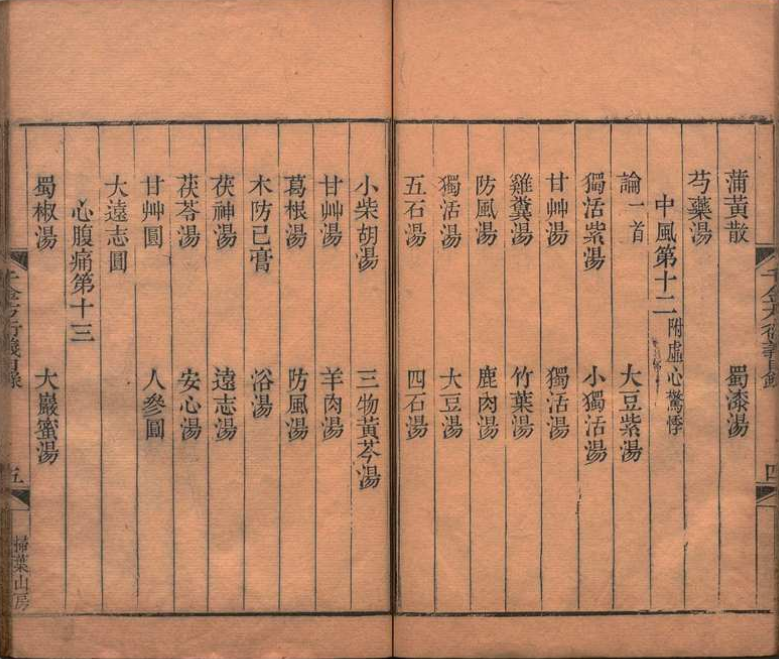 蒲黃散 蜀漆湯
芍藥湯
中風第十二附虛心驚悸
論一首 大豆紫湯
獨活紫湯 小獨活湯
甘艸湯 獨活湯
雞糞湯 竹葉湯
防風湯 鹿肉湯
獨活湯 大豆湯
五石湯 四石湯
小柴胡湯 三物黃芩湯
甘艸湯 羊肉湯
葛根湯 防風湯
木防己膏 浴湯
茯神湯 遠志湯
茯苓湯 安心湯
甘艸圓 人參圓
大遠志圓
心腹痛第十三
蜀椒湯 大巖蜜湯
五
掃葉山房